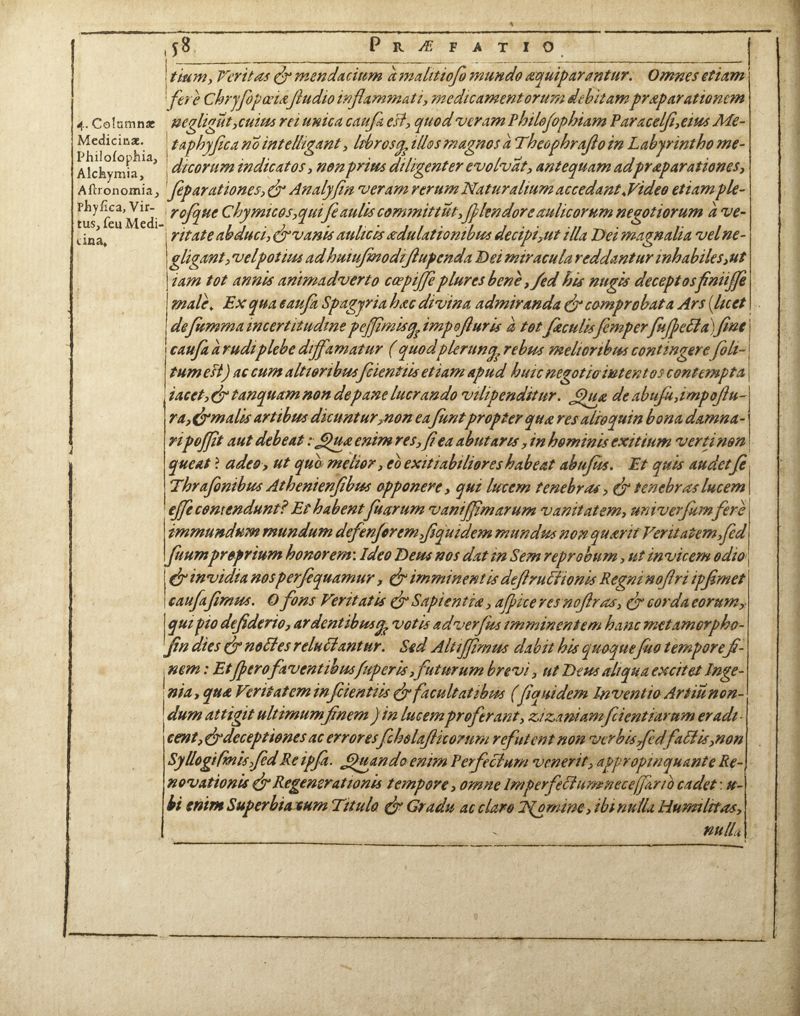 58 PRÆFATIO
4. Columnæ
Medicinæ.
Philoſophia,
Alchymia,
Aſtronomia,
Phyſica, Vir-
tus, ſeu Medi-
cina.
tium, Veritas & mendacium à malitioſo mundo æquiparantur. Omnes etiam
ferè Chryſopœiæ ſtudio inflammati, medicamentorum debitam præparationem
negligūt, cuius rei unica cauſa eſt, quod veram Philoſophiam Paracelſi, eius Me-
taphyſica nō intelligant, librosq; illos magnos à Theophraſto in Labyrintho me-
dicorum indicatos, non prius diligenter evolvāt, antequam ad præparationes,
ſeparationes, & Analyſin veram rerum Naturalium accedant. Video etiam ple-
roſque Chymicos, qui ſe aulis committūt, ſplendore aulicorum negotiorum à ve-
ritate abduci, & vanis aulicis ædulationibus decipi, ut illa Dei magnalia vel ne-
gligant, vel potius ad huiuſmodi ſtupenda Dei miracula reddantur inhabiles, ut
iam tot annis animadverto cœpiſſe plures bene, ſed his nugis deceptos finiiſſe
malè. Ex qua cauſa Spagyria hæc divina admiranda & comprobata Ars (licet
de ſumma incertitudine peſſimisq; impoſturis à tot ſæculis ſemper ſuſpecta) ſine
cauſa à rudi plebe diffamatur (quod plerunq; rebus melioribus contingere ſoli-
tum eſt) ac cum altioribus ſcientiis etiam apud huic negotio intentos contempta
iacet, & tanquam non de pane lucrando vilipenditur. Quæ de abuſu, impoſtu-
ra, & malis artibus dicuntur, non ea ſunt propter quæ res alioquin bona damna-
ri poſſit aut debeat: Quæ enim res, ſi ea abutaris, in hominis exitium verti non
queat? adeo, ut quò melior, eò exitiabiliores habeat abuſus. Et quis audet ſe
Thraſonibus Athenienſibus opponere, qui lucem tenebras, & tenebras lucem
eſſe contendunt? Et habent ſuarum vaniſſimarum vanitatem, univerſum ferè
immundum mundum defenſorem, ſiquidem mundus non quærit Veritatem, ſed
ſuum proprium honorem: Ideo Deus nos dat in Sem reprobum, ut invicem odio
& invidia nos perſequamur, & imminentis deſtructionis Regni noſtri ipſimet
cauſa ſimus. O fons Veritatis & Sapientiæ, aſpice res noſtras, & corda eorum,
qui pio deſiderio, ardentibusq; votis adverſus imminentem hanc metamorpho-
ſin dies & noctes reluctantur. Sed Altiſſimus dabit his quoque ſuo tempore fi-
nem: Et ſpero faventibus ſuperis, futurum brevi, ut Deus aliqua excitet Inge-
nia, quæ Veritatem in ſcientiis & facultatibus (ſiquidem Inventio Artiū non-
dum attigit ultimum finem) in lucem proferant, zizaniam ſcientiarum eradi-
cent, & deceptiones ac errores ſcholaſticorum refutent non verbis, ſed factis, non
Syllogiſmis, ſed Re ipſa. Quando enim Perfectum venerit, appropinquante Re-
novationis & Regenerationis tempore, omne Imperfectum neceſſariò cadet: u-
bi enim Superbia tum Titulo & Gradu ac claro Nomine, ibi nulla Humilitas,
nulla